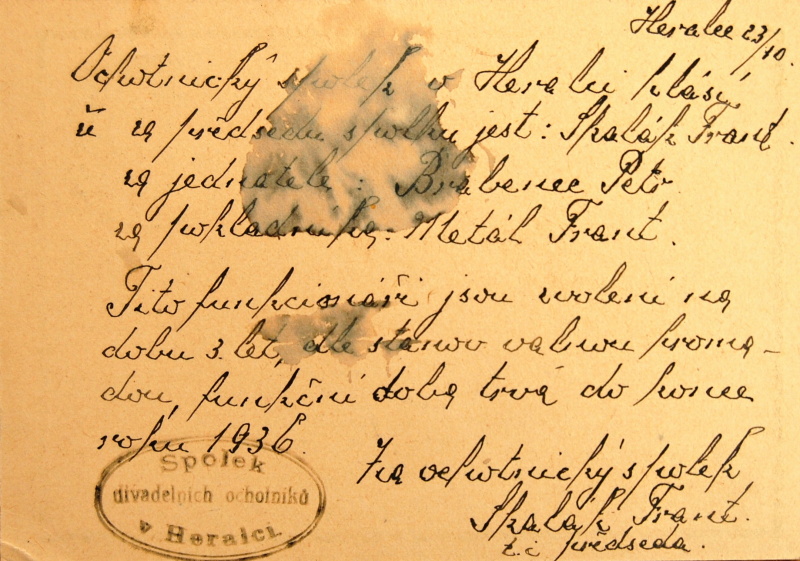 Heralec 23/10.
Ochotnický spolek v Heralci hlásí,
ž za předsedu spolku jest: Skalák Frant.
za jednatele: Brabenec Petr
za pokladníka: Metál Frant.
Tito funkcionáři jsou zvoleni na
dobu 3. let, dle stanov valnou hroma-
dou, funkční doba trvá do konce
roku 1936.
Za ochotnický spolek
Skalák Frant.
t. č. předseda.
Spolek
divadelních ochotníků
v Heralci.